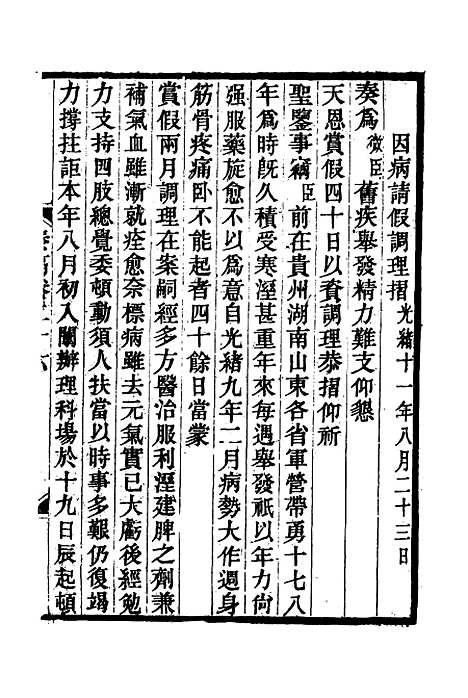 因病請假調理摺光緒十一年八月二十三日
奏爲微臣舊疾舉發精力難支仰懇
天恩賞假四十日以資調理恭摺仰祈
聖鑒事竊臣前在貴州湖南山東各省軍營帶勇十七八
年爲時旣久積受寒溼甚重年來每遇舉發祇以年力尙
强服藥旋愈不以爲意自光緒九年二月病勢大作週身
筋骨疼痛卧不能起者四十餘日當蒙
賞假兩月調理在案嗣經多方醫治服利溼建脾之劑兼
補氣血雖漸就痊愈奈標病雖去元氣實已大虧後經勉
力支持四肢總覺委頓動須人扶當以時事多艱仍復竭
力撐拄詎本年八月初入闈辦理科場於十九日辰起頓